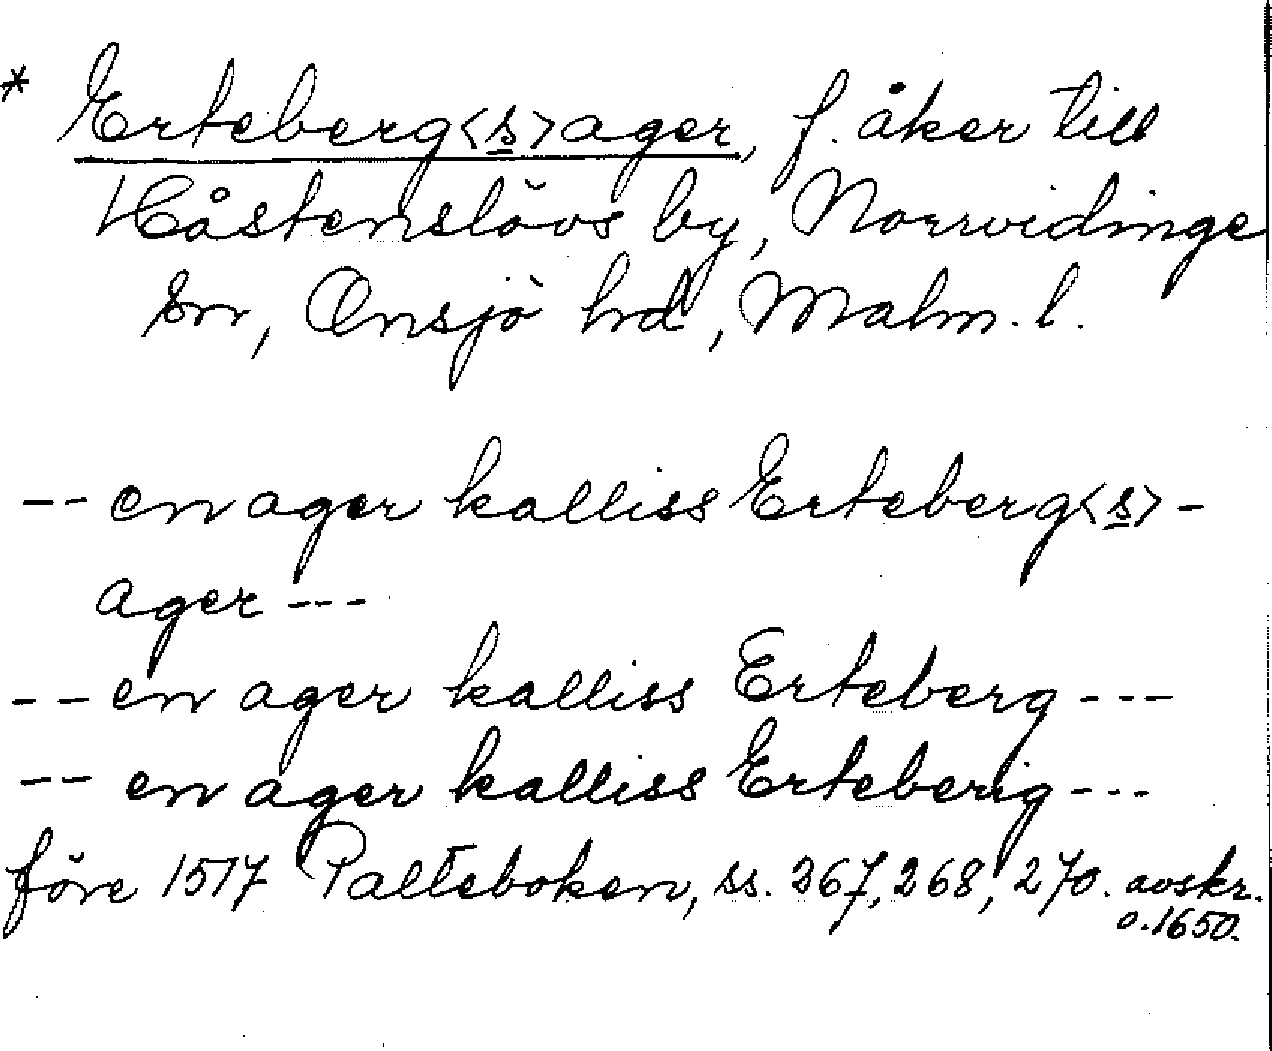 * Erteberg<s>ager, f. åker till
Håstenslövs by, Norrvidinge
sn, Onsjö hd, Malm. l.
-- en ager kalliss Erteberg<s>-
ager ---
-- en ager kalliss Erteberg ---
-- en ager kalliss Erteberig ---
före 1517 Palteboken, ss. 267, 268, 270. avskr.
o. 1650.